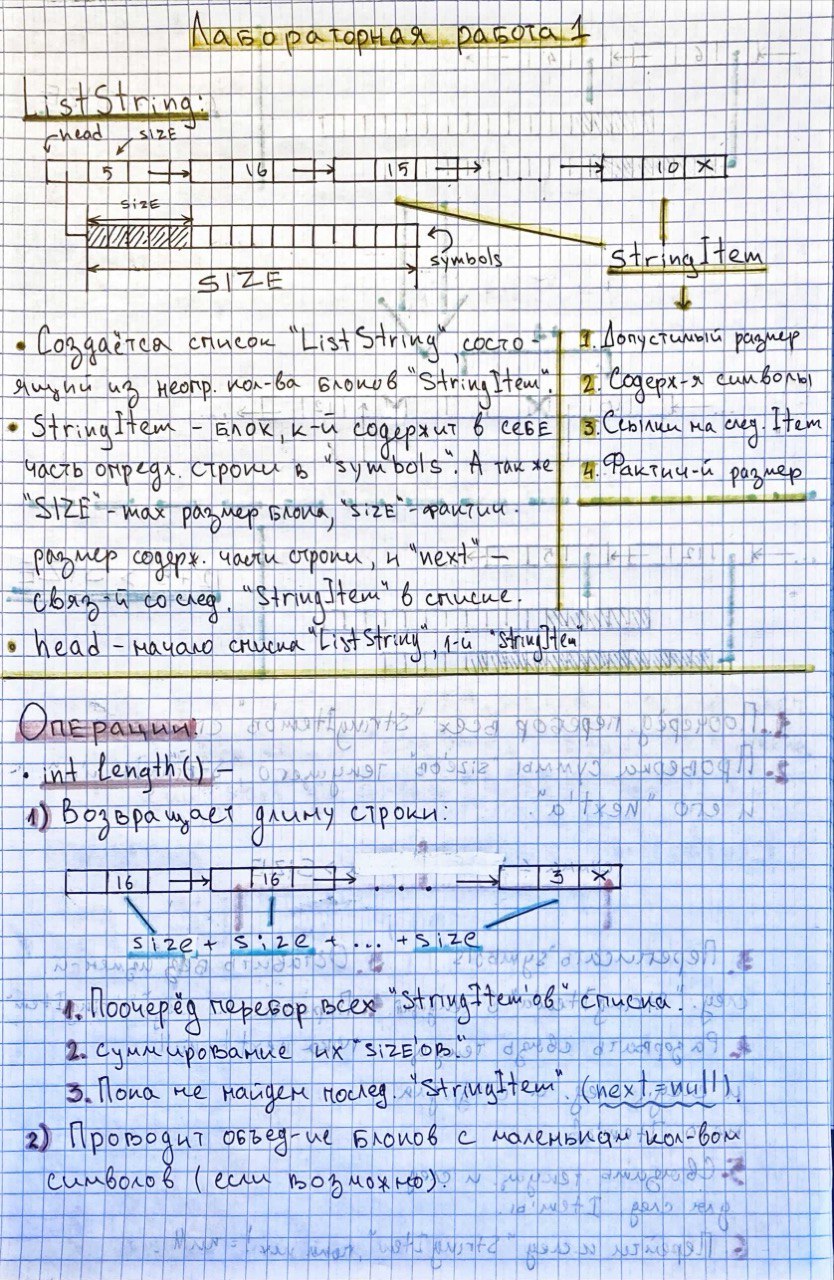 Лабораторная работа 1
ListString:
head size
5 16 15 . . . 10 X
size
symbols
SIZE
StringItem
• Создаётся список "ListString", состо-
ящий из неопр. кол-ва блоков "StringItem".
• StringItem - блок, к-й содержит в себе
часть опредл. строки в "symbols". А так же
"SIZE"-max размер блока, "size"-фактич.
размер содерж. части строки, и "next" -
связ-й со след. "StringItem" в списке.
• head - начало списка "ListString", 1-й "StringItem"
1. Допустимый размер
2. Содерж-я символы
3. Ссылки на след. Item
4. Фактич-й размер
Операции.
• int length() -
1) Возвращает длину строки:
16 16 . . . 3 X
size + size + ... + size
1. Поочерёд перебор всех "StringItem'ов" списка.
2. суммирование их "size'ов."
3. Пока не найден послед. "StringItem". (next = null).
2) Проводит объед-ие блоков с маленьким кол-вом
символов (если возможно).